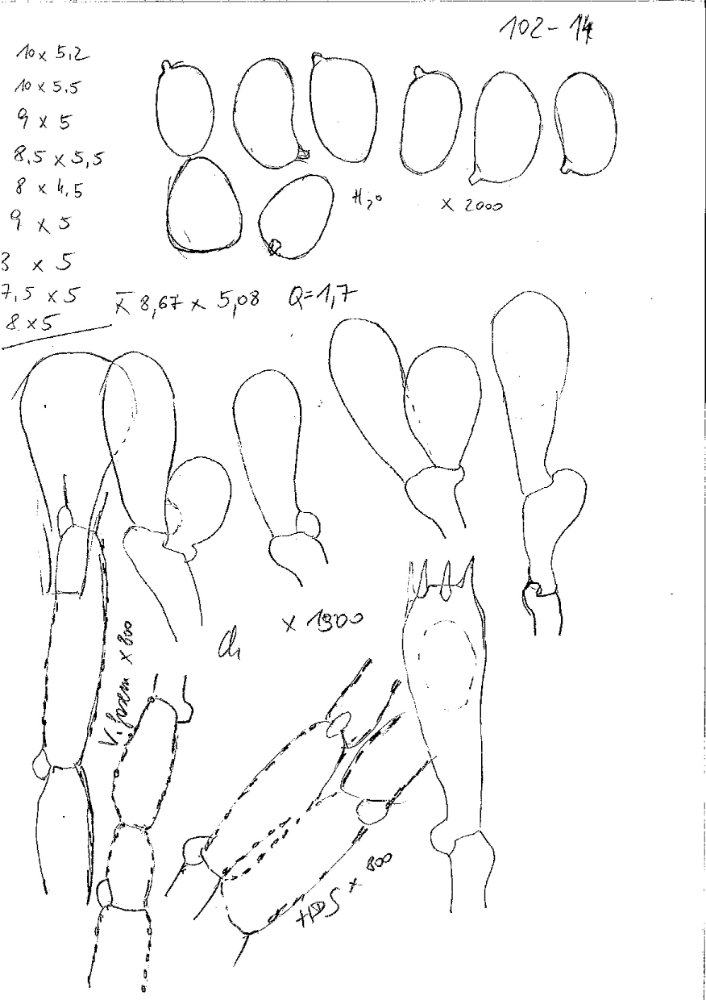 102-14
10 x 5,2
10 x 5,5
9 x 5
8,5 x 5,5
8 x 4,5
9 x 5
3 x 5
7,5 x 5
8 x 5
H₂O x 2000
x̄ 8,67 x 5,08 Q=1,7
x 1900
x 800
HDS x 800